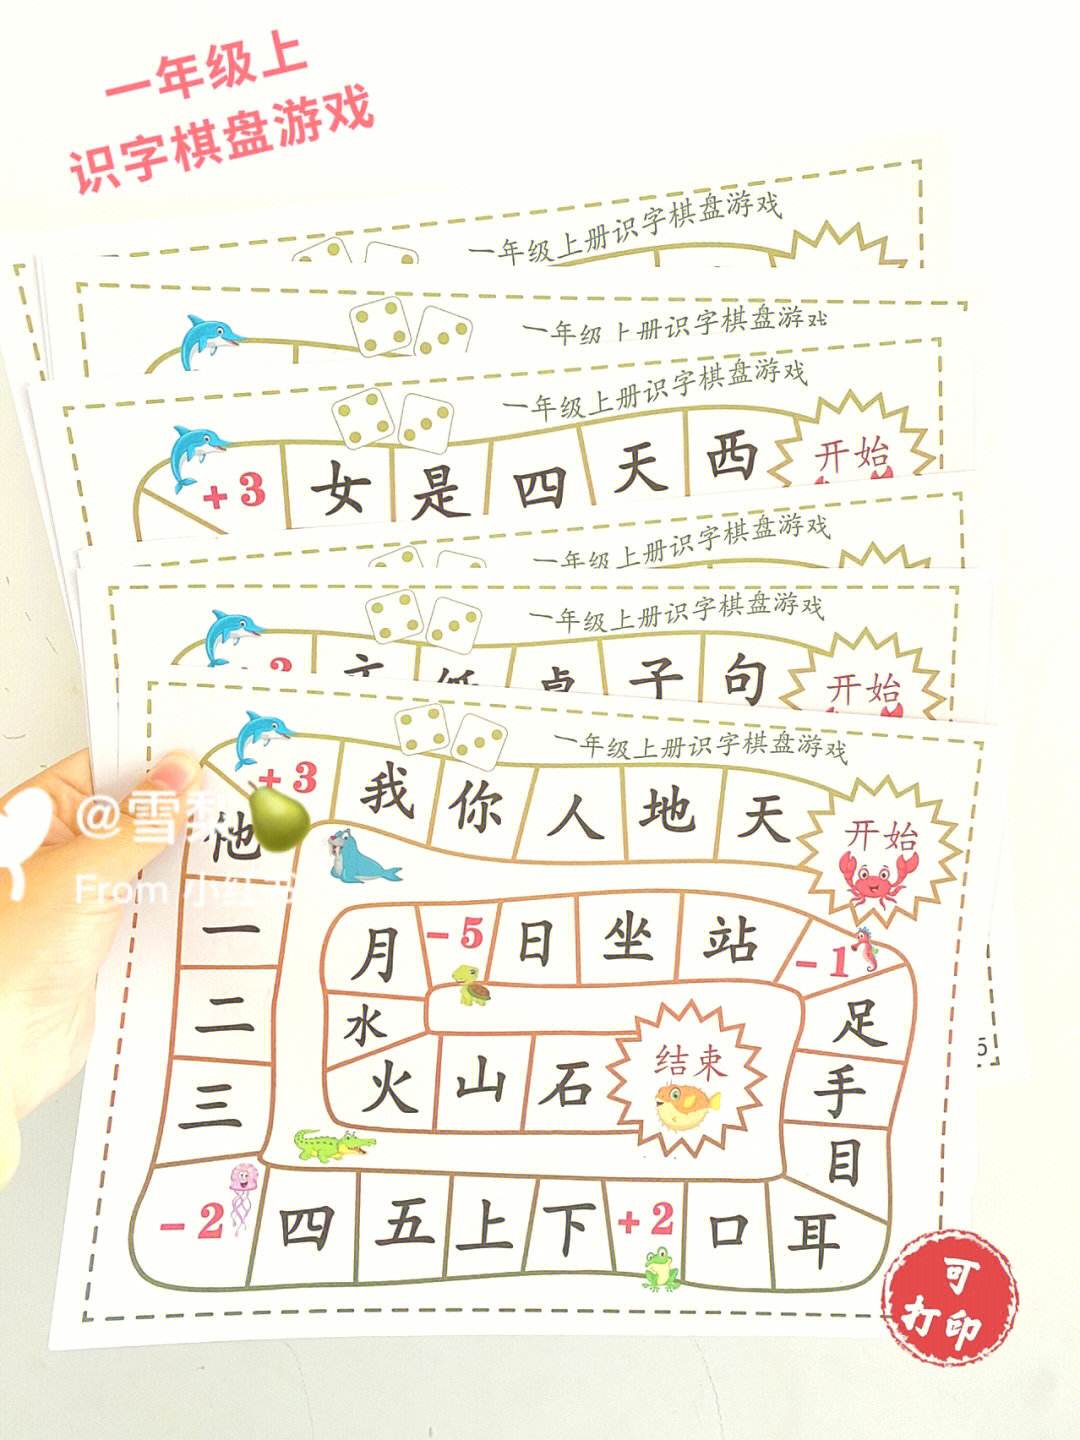 一年级上
识字棋盘游戏
一年级上册识字棋盘游戏
一年级上册识字棋盘游戏
一年级上册识字棋盘游戏
+3 女 是 四 天 西 开始
一年级上册识字棋盘游戏
一年级上册识字棋盘游戏
子 句 开始
一年级上册识字棋盘游戏
+3 我 你 人 地 天 开始
他
@雪梨
From 小红书
一
二
三
-2 四 五 上 下 +2 口 耳
目
手
足
-1
站 坐 日 -5 月
水
火 山 石 结束
5
可
打印